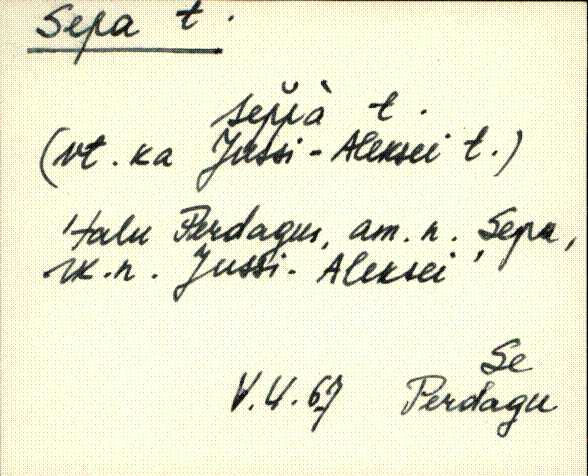 Sepa t.
sep̆p̀à t.
(vt. ka Jussi-Aleksei t.)
Talu Perdagus, am. n. Sepa,
rk. n. Jussi-Aleksei
Se
V. U. 67 Perdagu